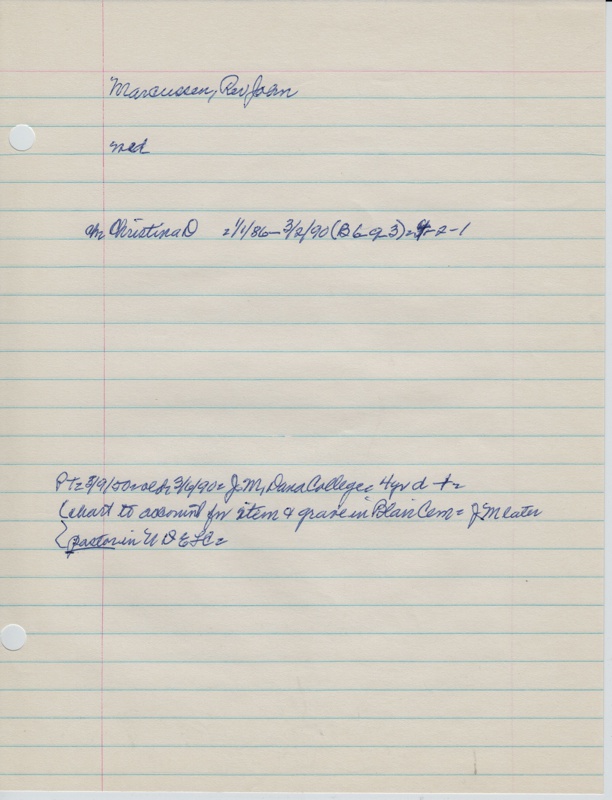 Marcussen, Rev John
md
Christina D = 1/1/86 - 3/2/90 (B 6 g 3) = 4-2-1
3/9/50 3/6/90 = J.M, Dana College, 4 yr d +=
(chart to account for item & grave in Blair Cem = J M later
pastor in U D E L C =